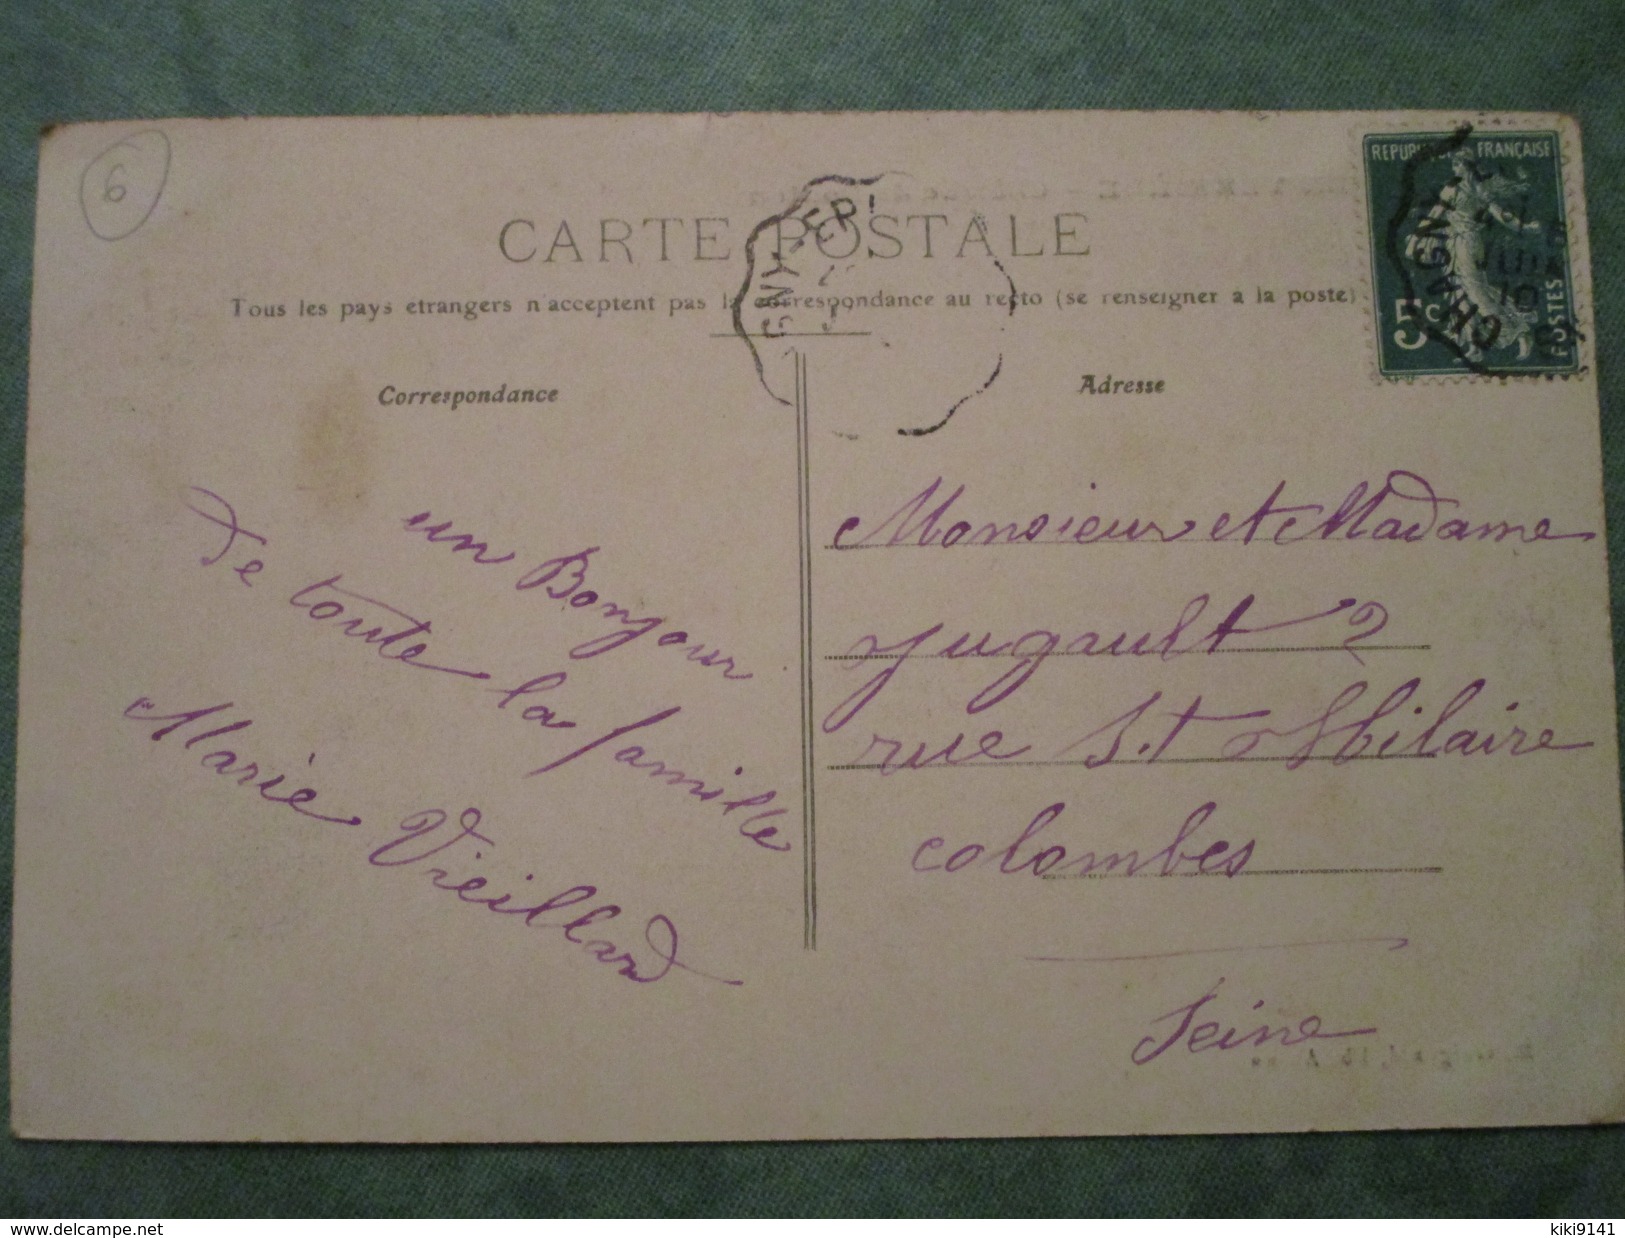 6
CARTE POSTALE
Tous les pays etrangers n'acceptent pas la correspondance au recto (se renseigner a la poste)
REPUBLIQUE FRANÇAISE
5c
POSTES
CHAGNY
JUIN
10
GNY - EPI
Correspondance
Adresse
un Bonjour
De toute la famille
Marie Vieillard
Monsieur et Madame
Jugault 2
rue S.t Hilaire
colombes
Seine
www.delcampe.net
kiki9141